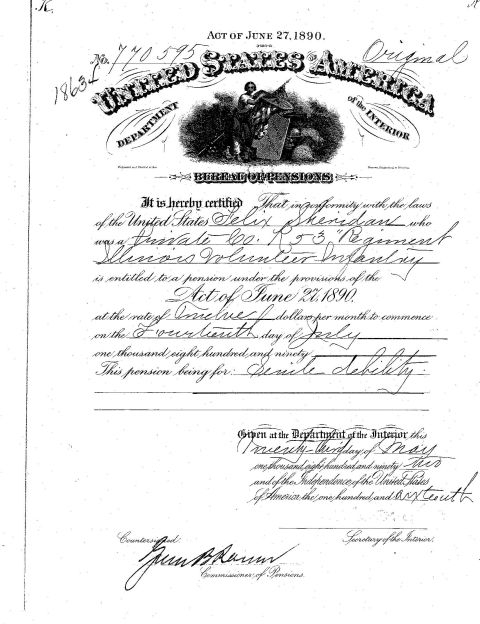 K.
ACT OF JUNE 27, 1890.
No. 770595
Original
18634
UNITED STATES OF AMERICA
DEPARTMENT
of the INTERIOR
BUREAU OF PENSIONS
It is hereby certified That in conformity with the laws
of the United States Felix Sheridan who
was a Private Co. K 53 Regiment
Illinois Volunteer Infantry
is entitled to a pension under the provisions of the
Act of June 27, 1890.
at the rate of Twelve dollars per month to commence
on the Fourteenth day of July
one thousand eight hundred and ninety
This pension being for: senile debility.
Given at the Department of the Interior this
Twenty-third day of May
one thousand eight hundred and ninety-two
and of the Independence of the United States
of America the one hundred and sixteenth
Countersigned
Secretary of the Interior.
Commissioner of Pensions.